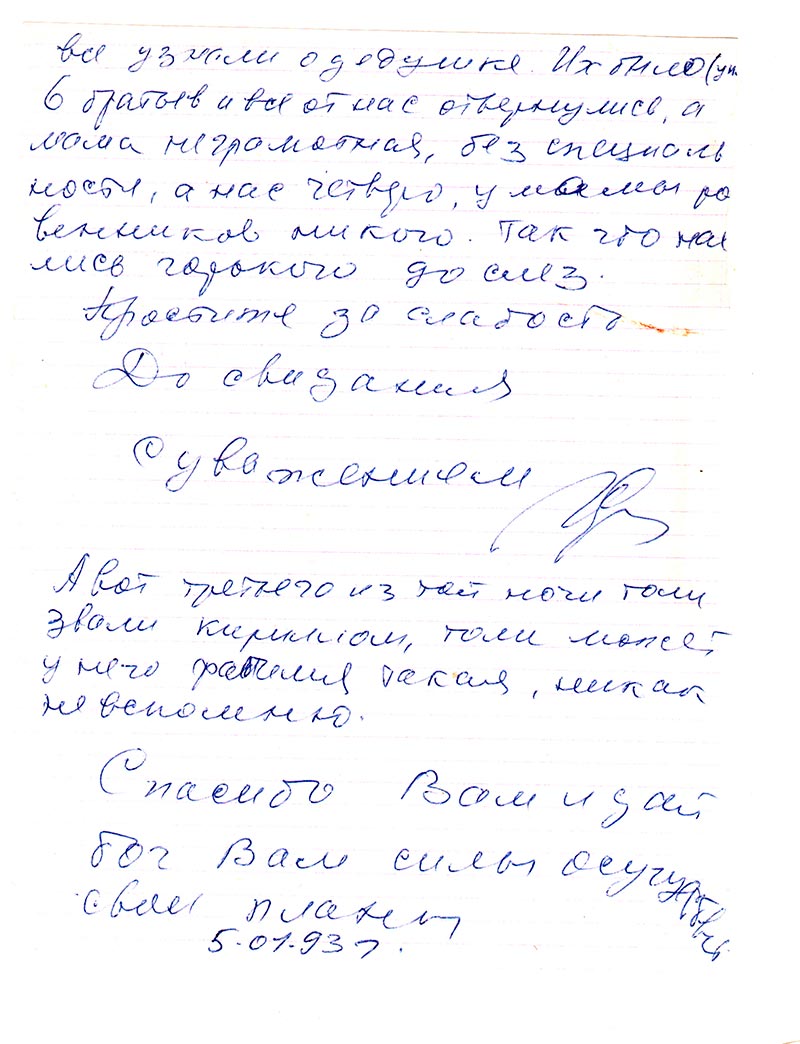 все узнали о дедушке. Их было (у
6 братьев и все от нас отвернулись, а
мама неграмотная, без специаль
ности, а нас четверо, у мамы ро
венников никого. Так что на
лись горького до слез.
Простите за слабость
До свидания
С уважением
А вот третьего из той ночи толи
звали Кириллом, толи может
у него фамилия такая, никак
не вспомню.
Спасибо Вам и дай
бог Вам силы осущуствить
свои планы
5.01.93 г.